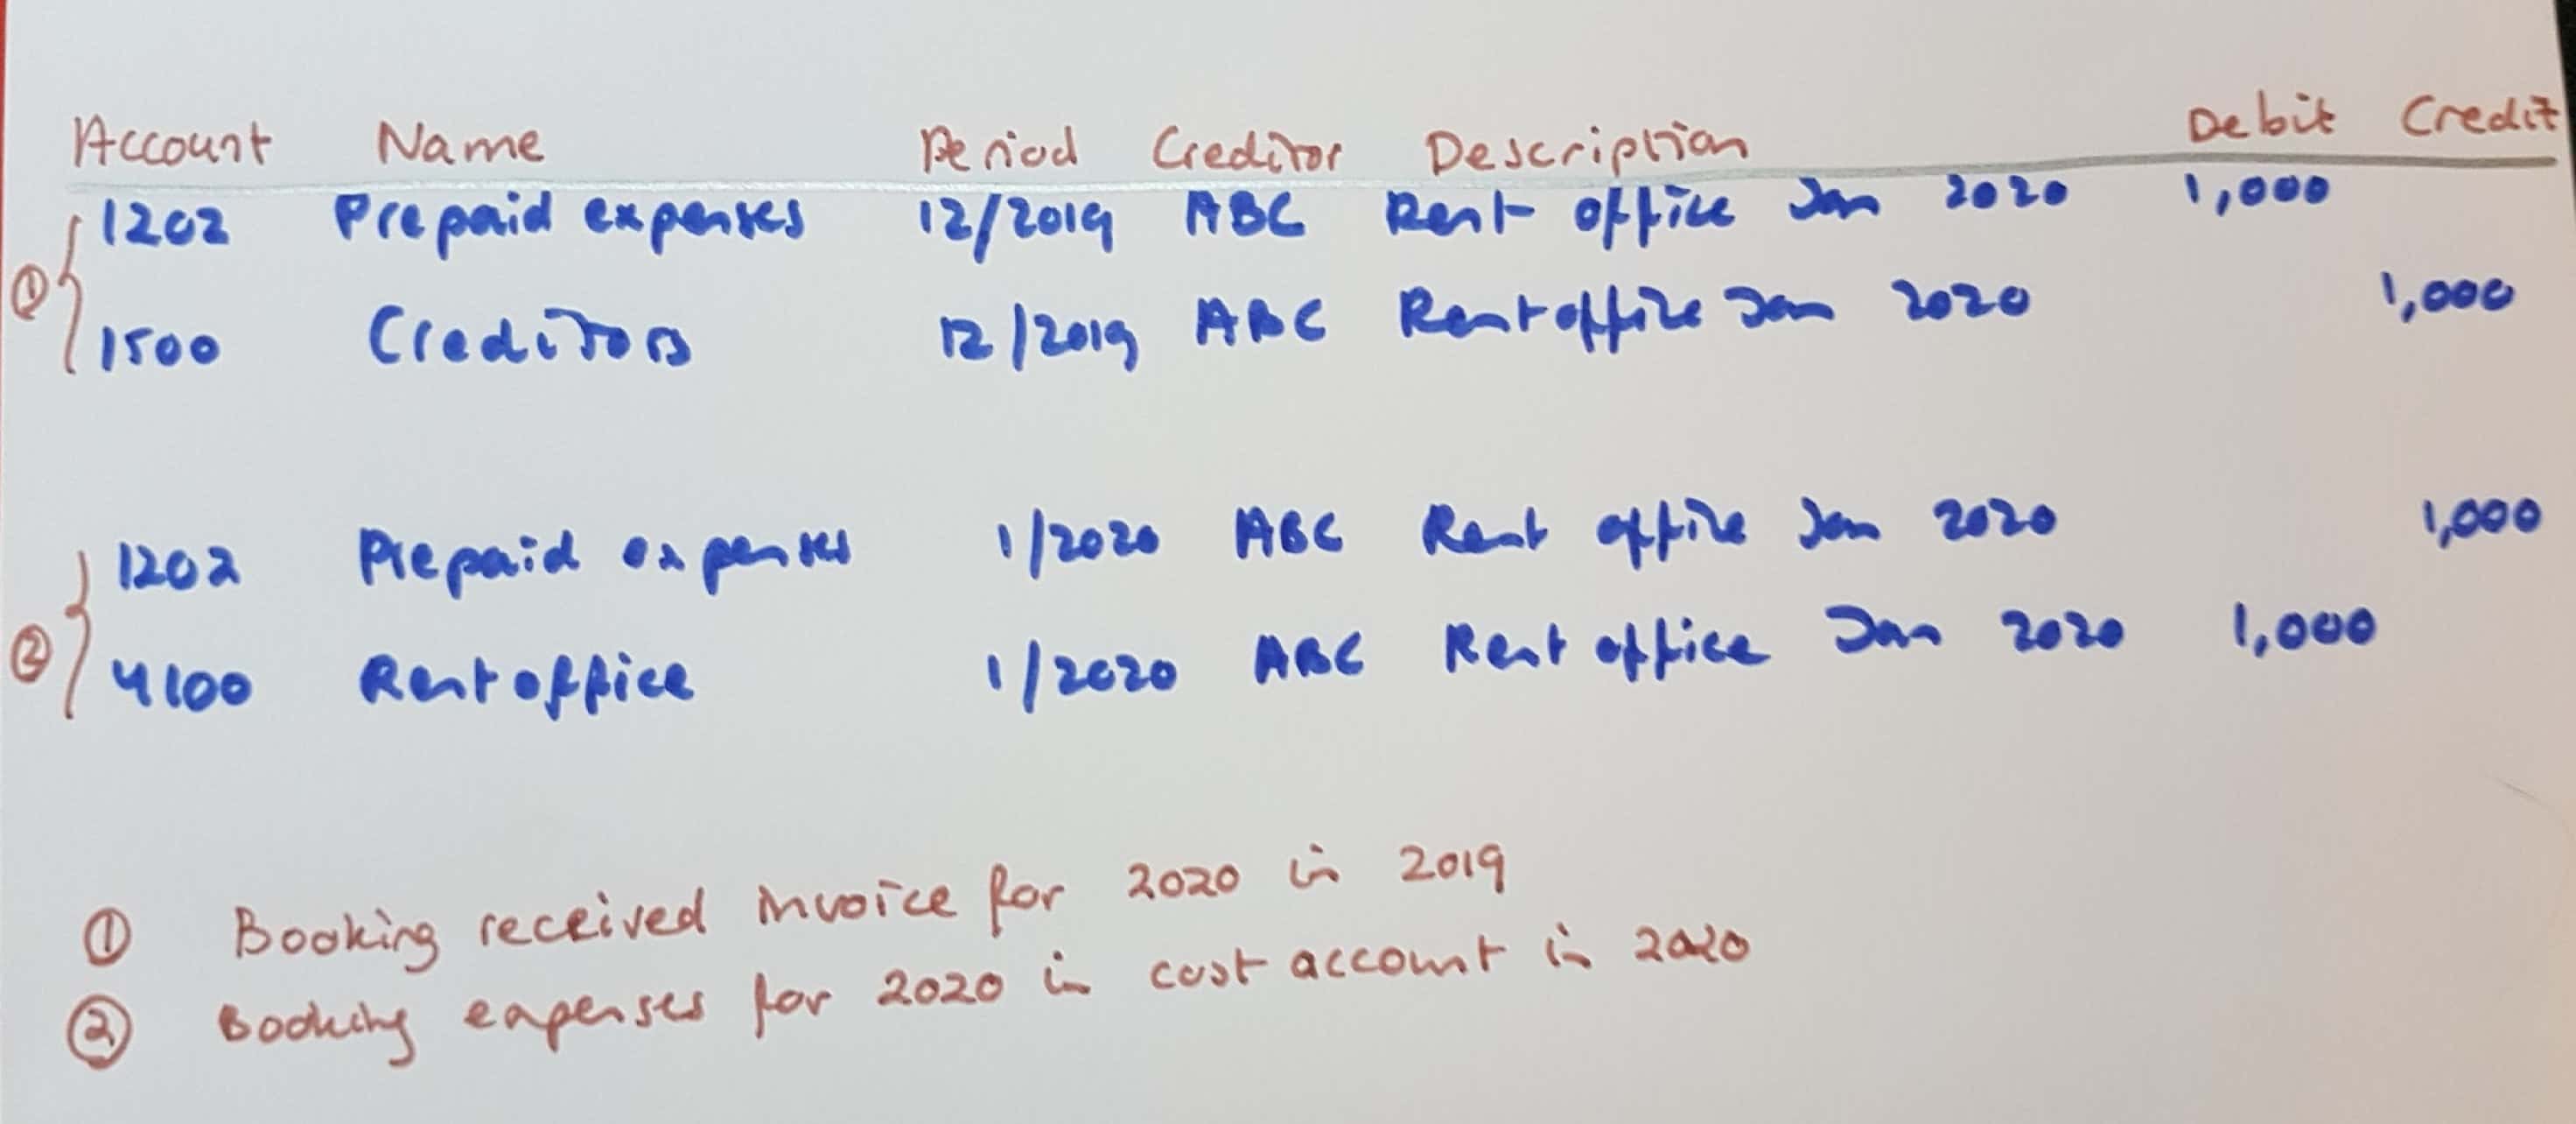 Account Name Period Creditor Description Debit Credit
1202 Prepaid expenses 12/2019 ABC Rent office Jan 2020 1,000
①
1500 Creditors 12/2019 ABC Rent office Jan 2020 1,000
1202 Prepaid expenses 1/2020 ABC Rent office Jan 2020 1,000
②
4100 Rent office 1/2020 ABC Rent office Jan 2020 1,000
① Booking received invoice for 2020 in 2019
② Booking expenses for 2020 in cost account in 2020